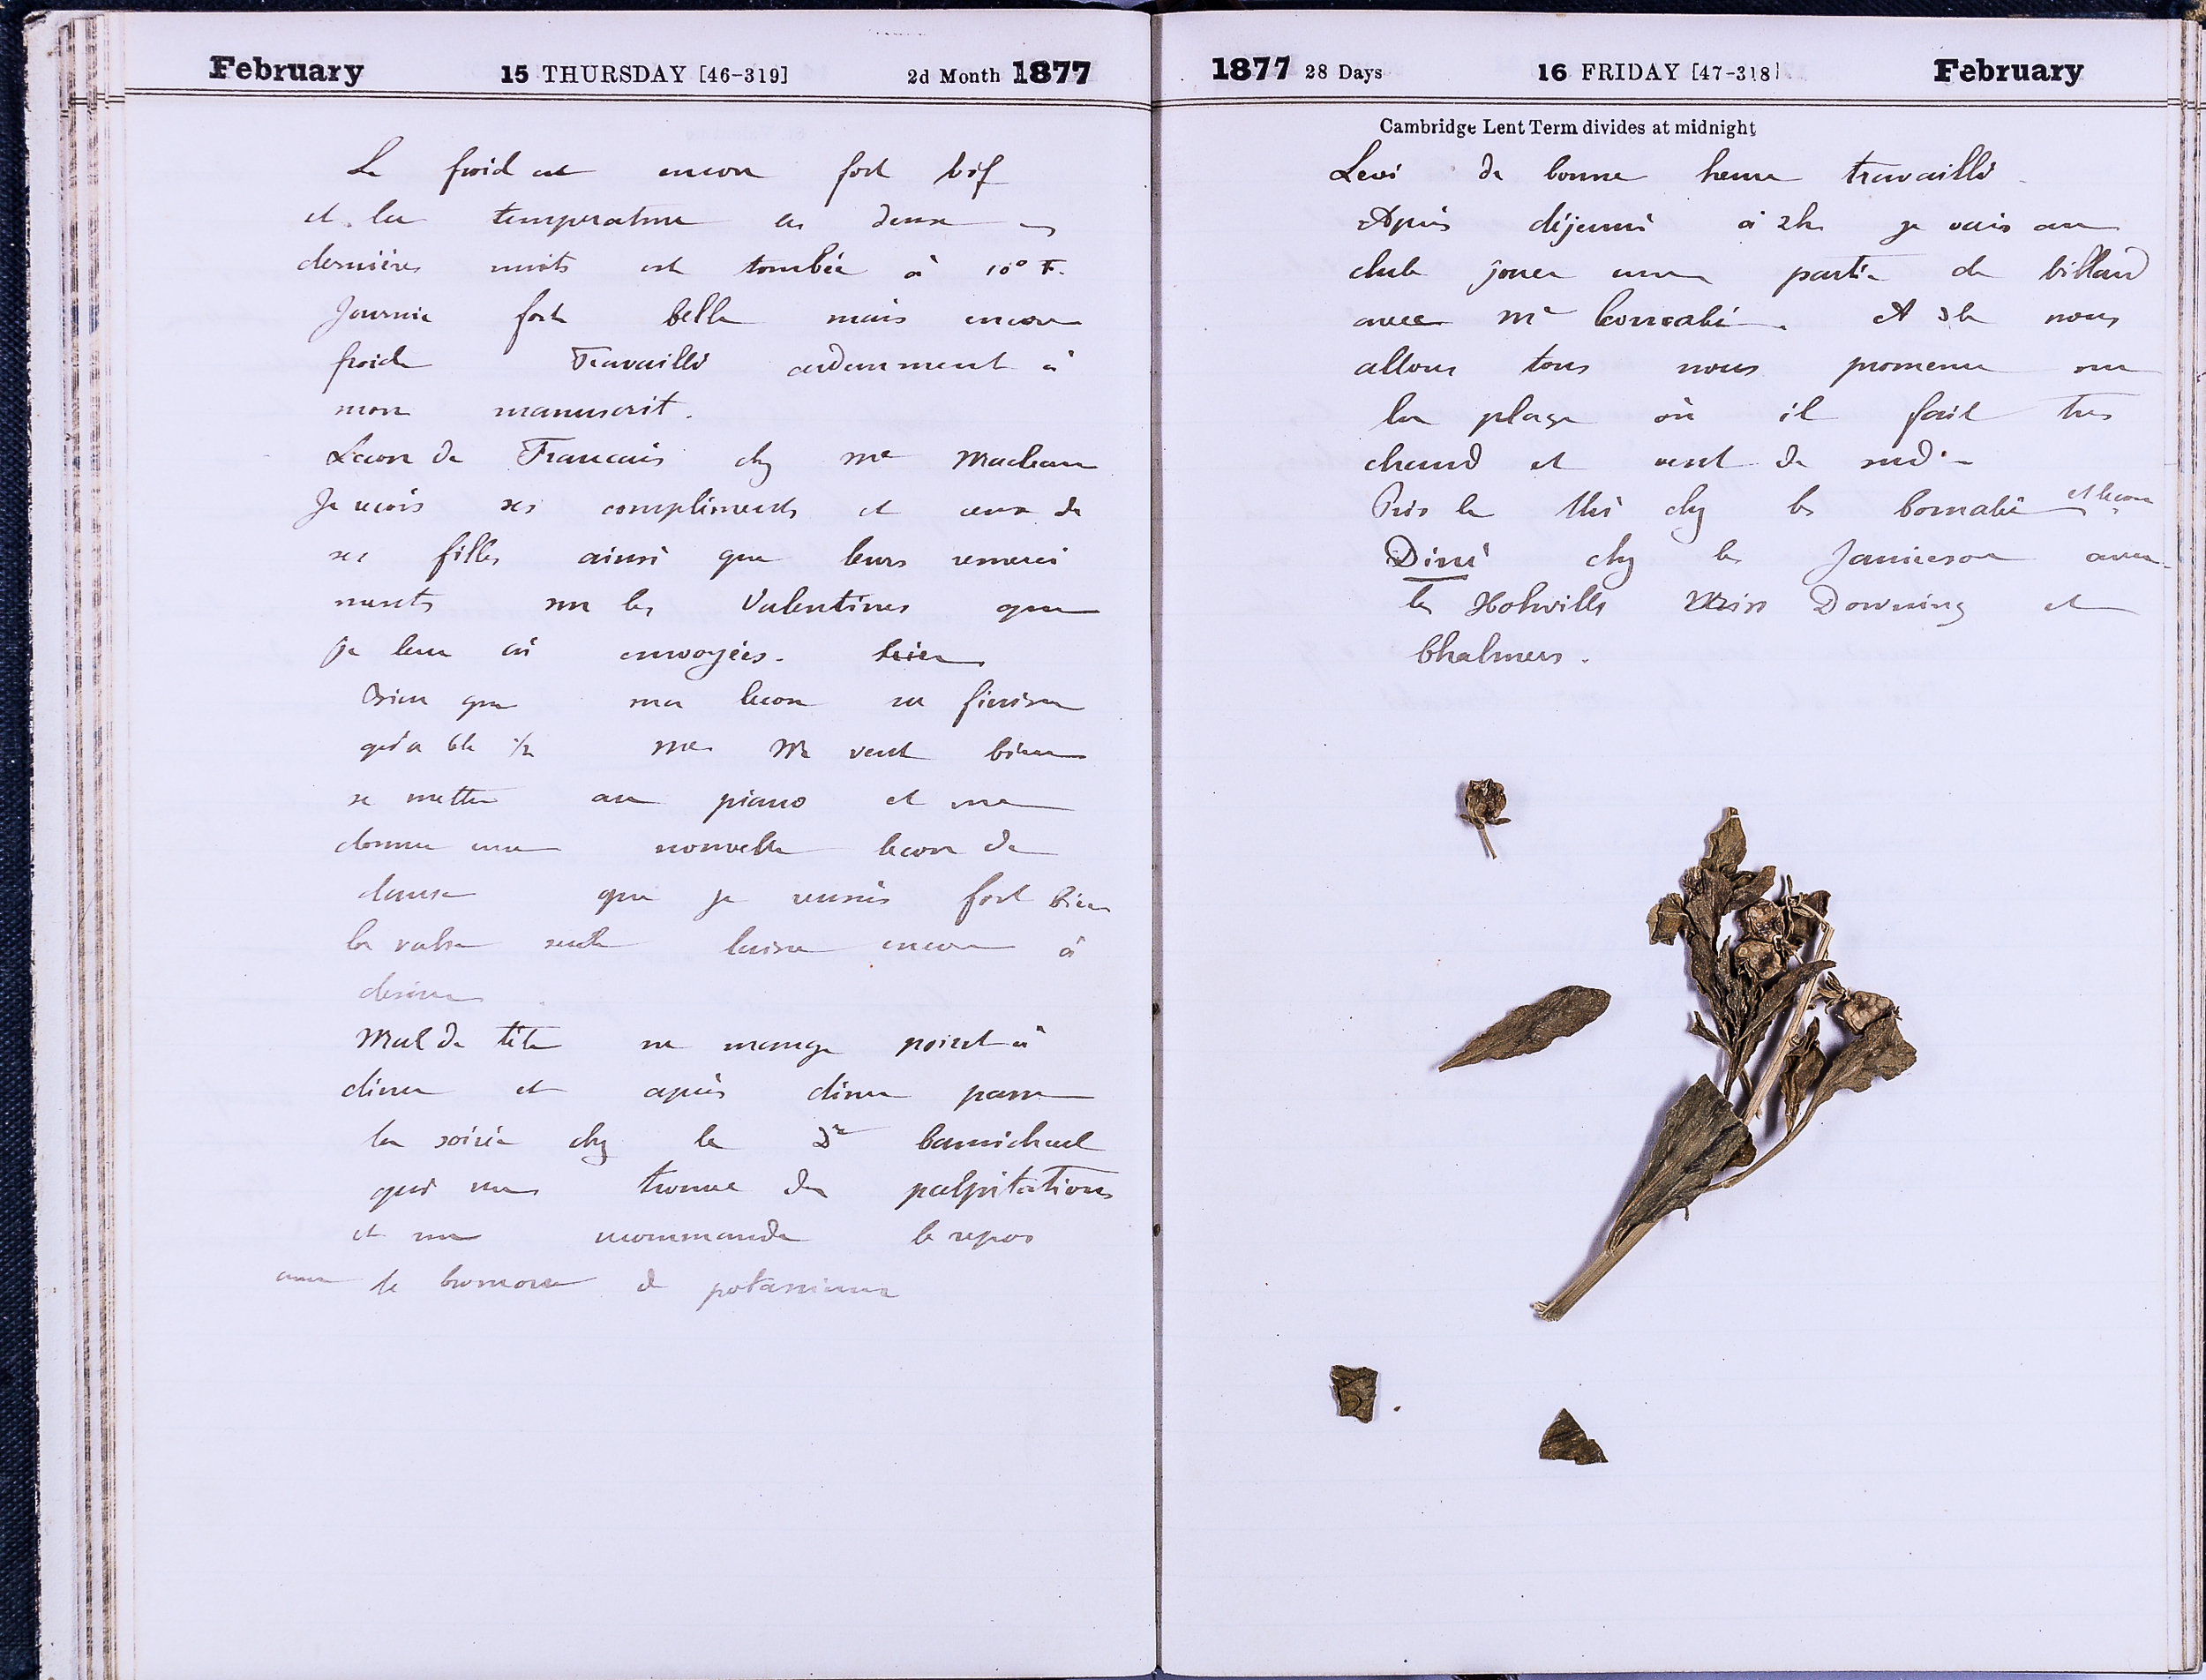 February 15 THURSDAY [46-319] 2d Month 1877
Le froid est encore fort vif
et la temperature ces deux
dernières nuits est tombée à 10° F.
Journée fort belle mais encore
froide Travaillé ardemment à
mon manuscrit.
Lecon de Francais chez me Maclean
Je recois ses compliments et ceux de
ses filles ainsi que leurs remerci
ments sur les Valentines que
je leur ai envoyées. bien
Bien que ma lecon ne finisse
qu'a 6h 1/2 me M veut bien
se mettre au piano et me
donne une nouvelle lecon de
danse que je reussis fort bien
la valse seule laisse encore à
desirer
Mal de tête ne mange point à
diner et après diner passe
la soirée chez le Dr Carmichael
qui me trouve des palpitations
et me recommande le repos
avec le bromure de potassium
1877 28 Days 16 FRIDAY [47-318] February
Cambridge Lent Term divides at midnight
Levé de bonne heure travaillé.
Après déjeuné à 2h je vais au
club jouer une partie de billard
avec Mr. A 3h nous
allons tous nous promener sur
la plage où il fait tres
chaud et vent de sud -
Pris le thé chez les et lecon
Diné chez les Jamieson avec
les Holwills Miss Downing et
Chalmers.